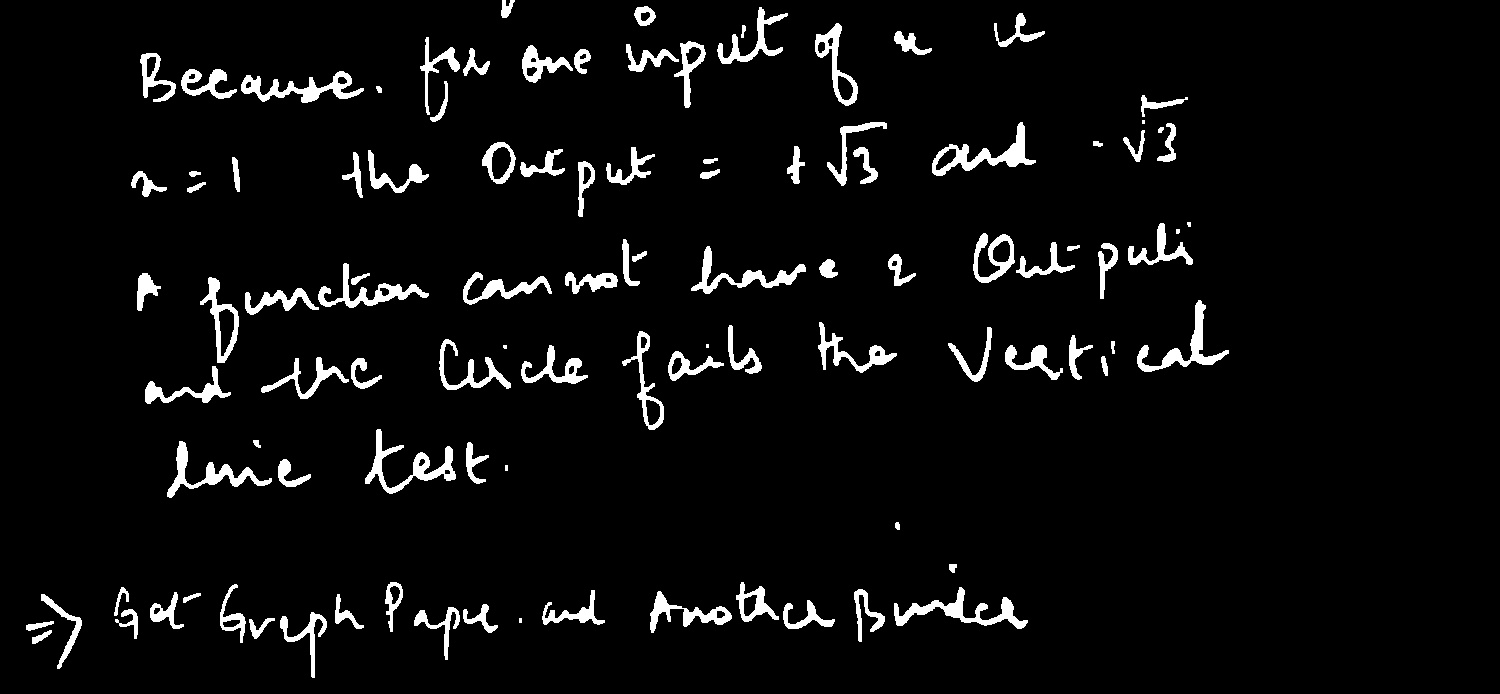 Because. for one input of x ie
x = 1 the Output = + √3 and - √3
A function cannot have 2 Outputs
and the Circle fails the Vertical
line test.
⇒ Get Graph Paper. and Another Binder